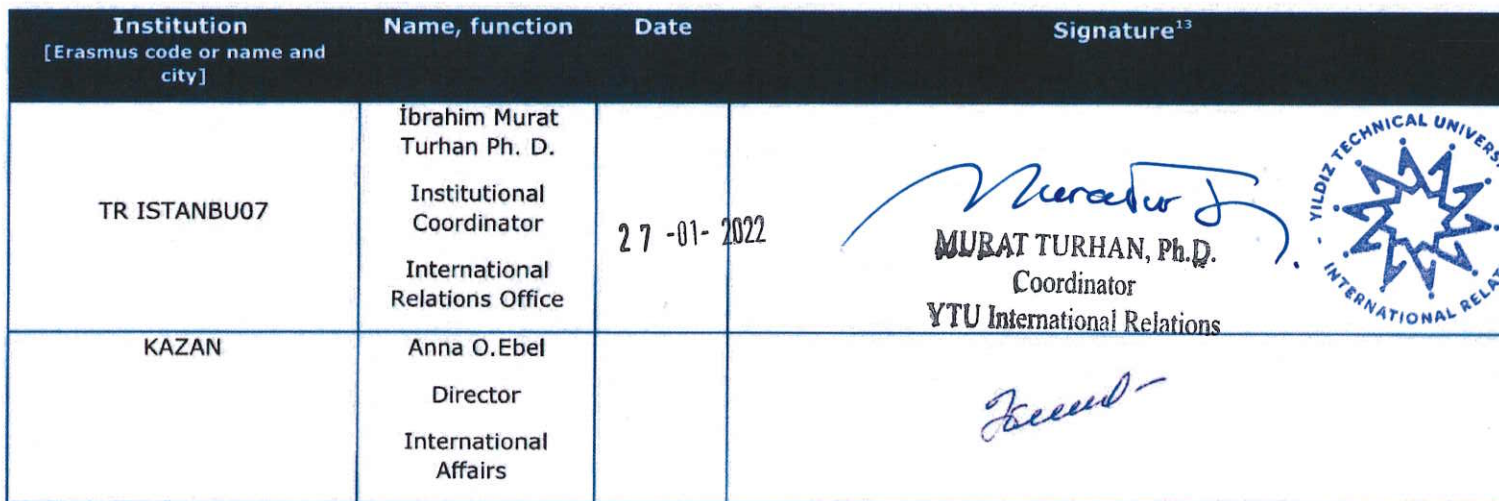 Institution
[Erasmus code or name and
city]
Name, function
Date
Signature¹³
TR ISTANBU07
İbrahim Murat
Turhan Ph. D.
Institutional
Coordinator
International
Relations Office
27 -01- 2022
MURAT TURHAN, Ph.D.
Coordinator
YTU International Relations
YILDIZ TECHNICAL UNIVERS
INTERNATIONAL RELAT
KAZAN
Anna O.Ebel
Director
International
Affairs